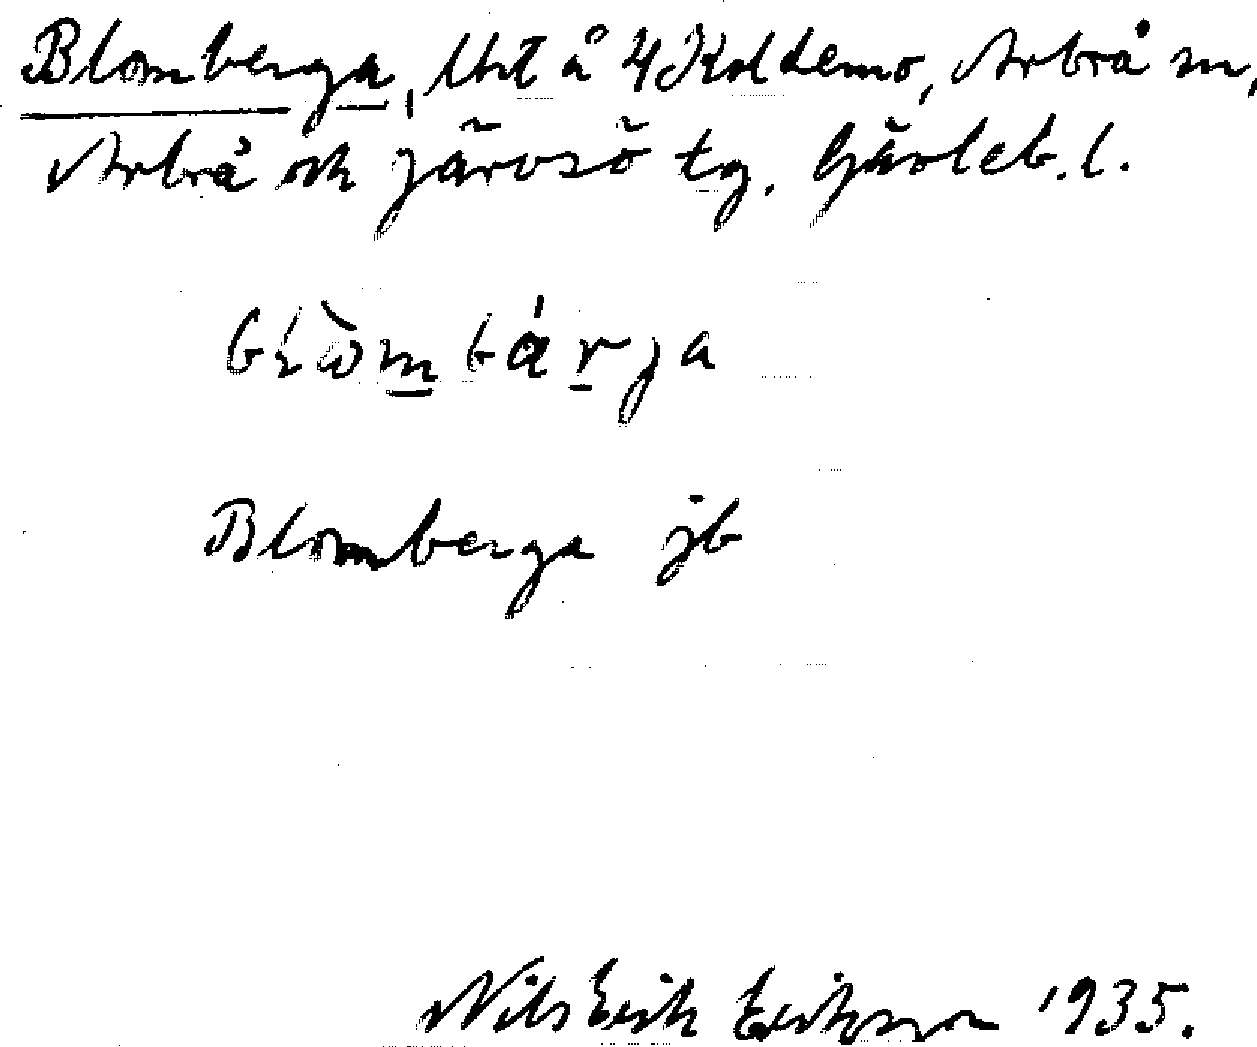 Blomberga, lht å 4 Koldemo, Arbrå sn,
Arbrå och Järvsö tg. Gävleb. l.
blòmbárja
Blomberga jb
Nils Erik Eriksson 1935.